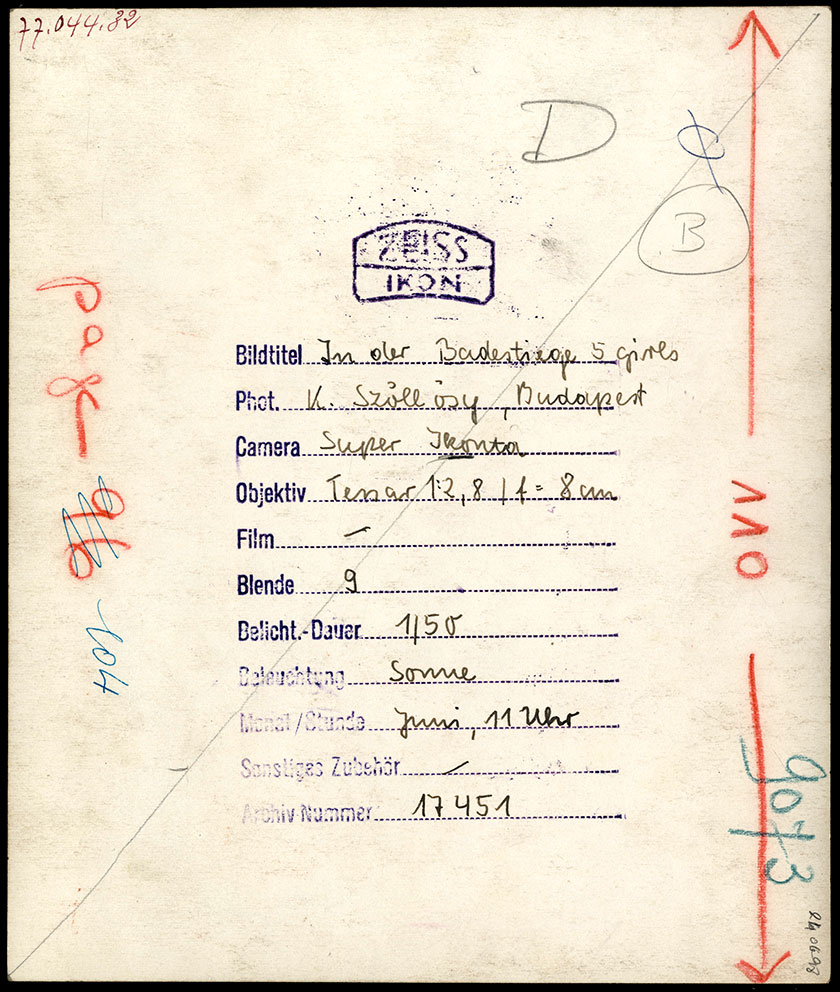 77.044.82
D
B
ZEISS
IKON
Bildtitel In der Badestiege 5 girls
Phot. K. Szöllösy, Budapest
Camera Super Ikonta
Objektiv Tessar 1:2,8 / f = 8 cm
Film —
Blende 9
Belicht.-Dauer 1/50
Beleuchtung Sonne
Monat/Stunde Juni, 11 Uhr
Sonstiges Zubehör —
Archiv-Nummer 17451
page
96
104
9073